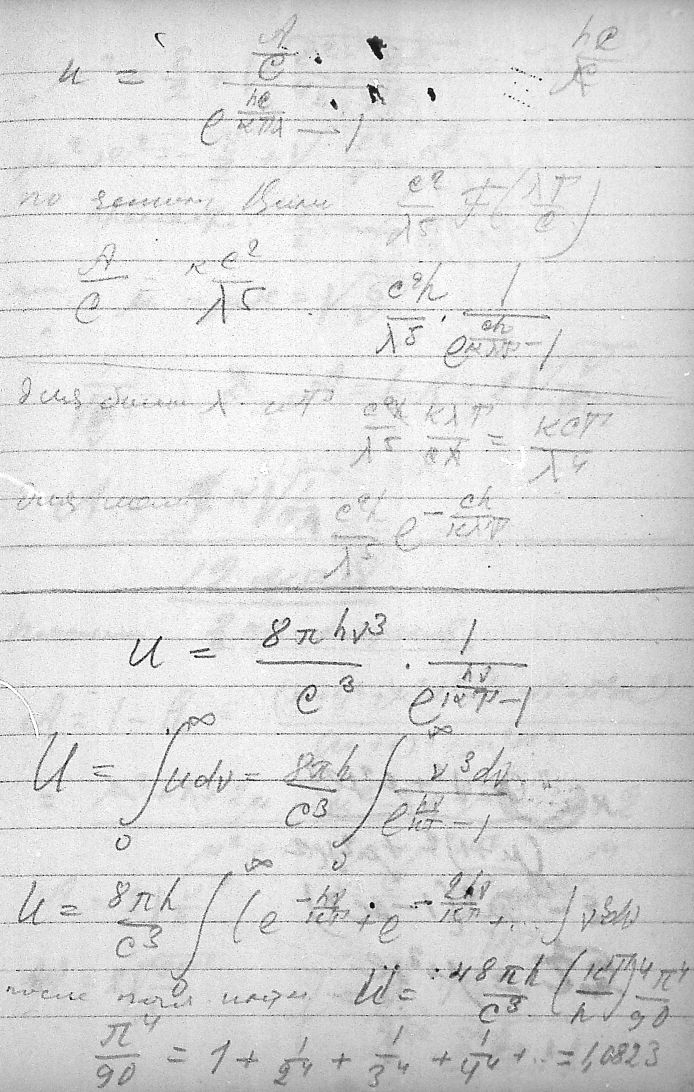 u = \frac{\frac{A}{c}}{e^{\frac{hc}{кTλ}} - 1} \frac{hc}{λ}
по Вина \frac{c^2}{λ^5} F\left(\frac{λT}{c}\right)
\frac{A}{c} \frac{к c^2}{λ^5} \frac{c^2h}{λ^5} \cdot \frac{1}{e^{\frac{ch}{кλT}} - 1}
для λ и T \frac{c^2h}{λ^5} \frac{кλT}{ch} = \frac{кcT}{λ^4}
для \frac{c^2h}{λ^5} e^{-\frac{ch}{кλT}}
u = \frac{8πhν^3}{c^3} \cdot \frac{1}{e^{\frac{hν}{кT}} - 1}
U = \int_0^∞ u dν = \frac{8πh}{c^3} \int_0^∞ \frac{ν^3 dν}{e^{\frac{hν}{кT}} - 1}
U = \frac{8πh}{c^3} \int_0^∞ (e^{-\frac{hν}{кT}} + e^{-\frac{2hν}{кT}} + ...) ν^3 dν
после U = \frac{48πh}{c^3} \left(\frac{кT}{h}\right)^4 \frac{π^4}{90}
\frac{π^4}{90} = 1 + \frac{1}{2^4} + \frac{1}{3^4} + \frac{1}{4^4} + ... = 1,0823